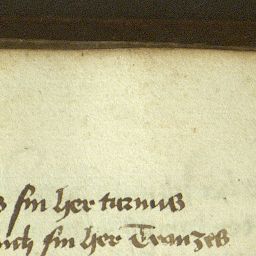 s sin her turnus
uch sin her Tranzes